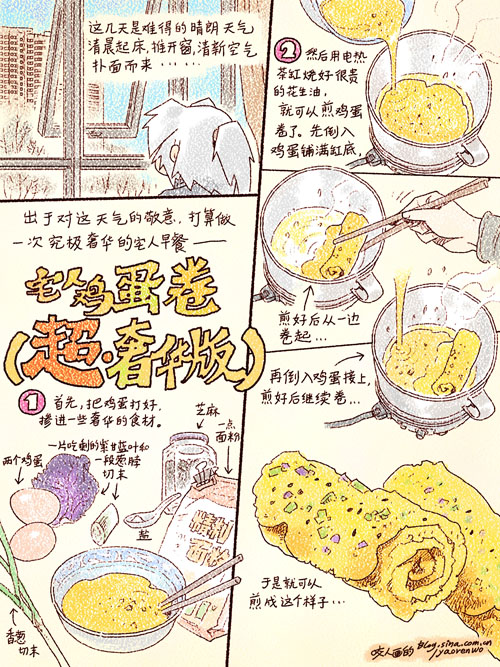 这几天是难得的晴朗天气
清晨起床,推开窗,清新空气
扑面而来······
出于对这天气的敬意,打算做
一次究极奢华的宅人早餐——
宅人鸡蛋卷
(超·奢华版)
1 首先,把鸡蛋打好,
掺进一些奢华的食材。
芝麻
一点
面粉
一片吃剩的紫甘蓝叶和
一段葱脖
切末
两个鸡蛋
盐
精制
面粉
香葱
切末
2 然后用电热
茶缸烧好很贵
的花生油,
就可以煎鸡蛋
卷了。先倒入
鸡蛋铺满缸底.
煎好后从一边
卷起...
再倒入鸡蛋接上,
煎好后继续卷...
于是就可以
煎成这个样子...
咬人画的
blog.sina.com.cn
/yaorenwo